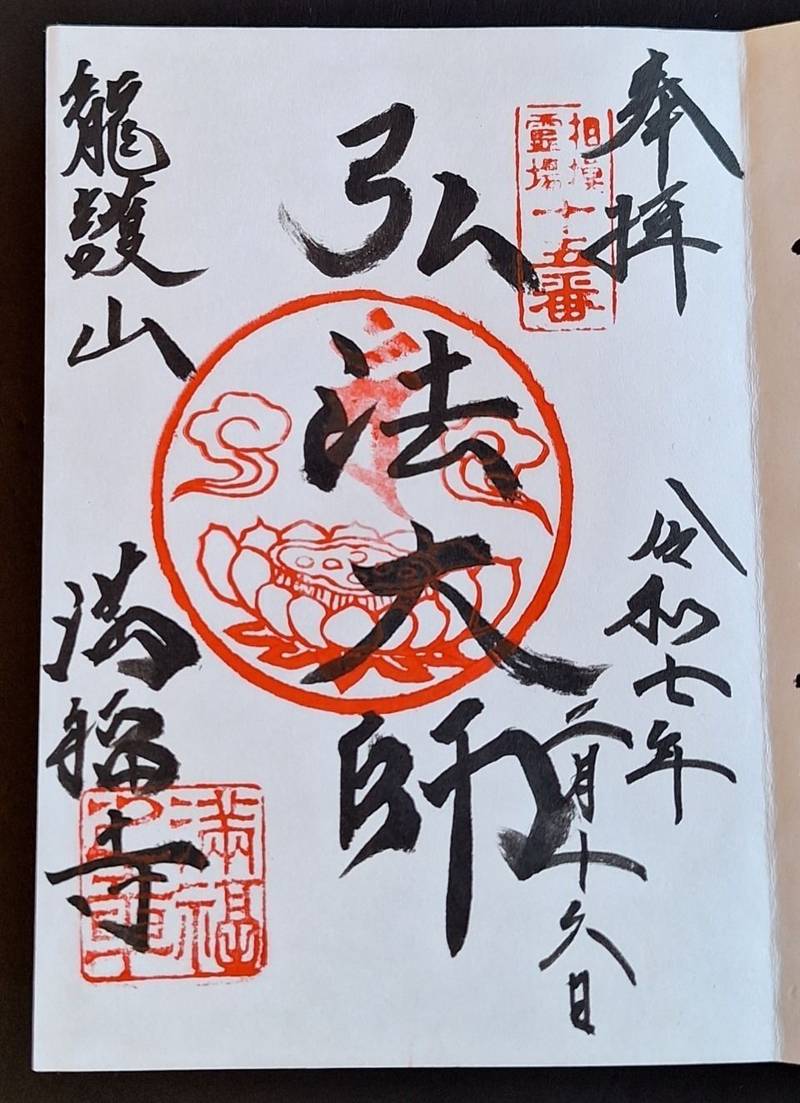 奉拝
相模
霊場
十五番
令和七年
二月十九日
弘法大師
龍護山
満福寺
滿福